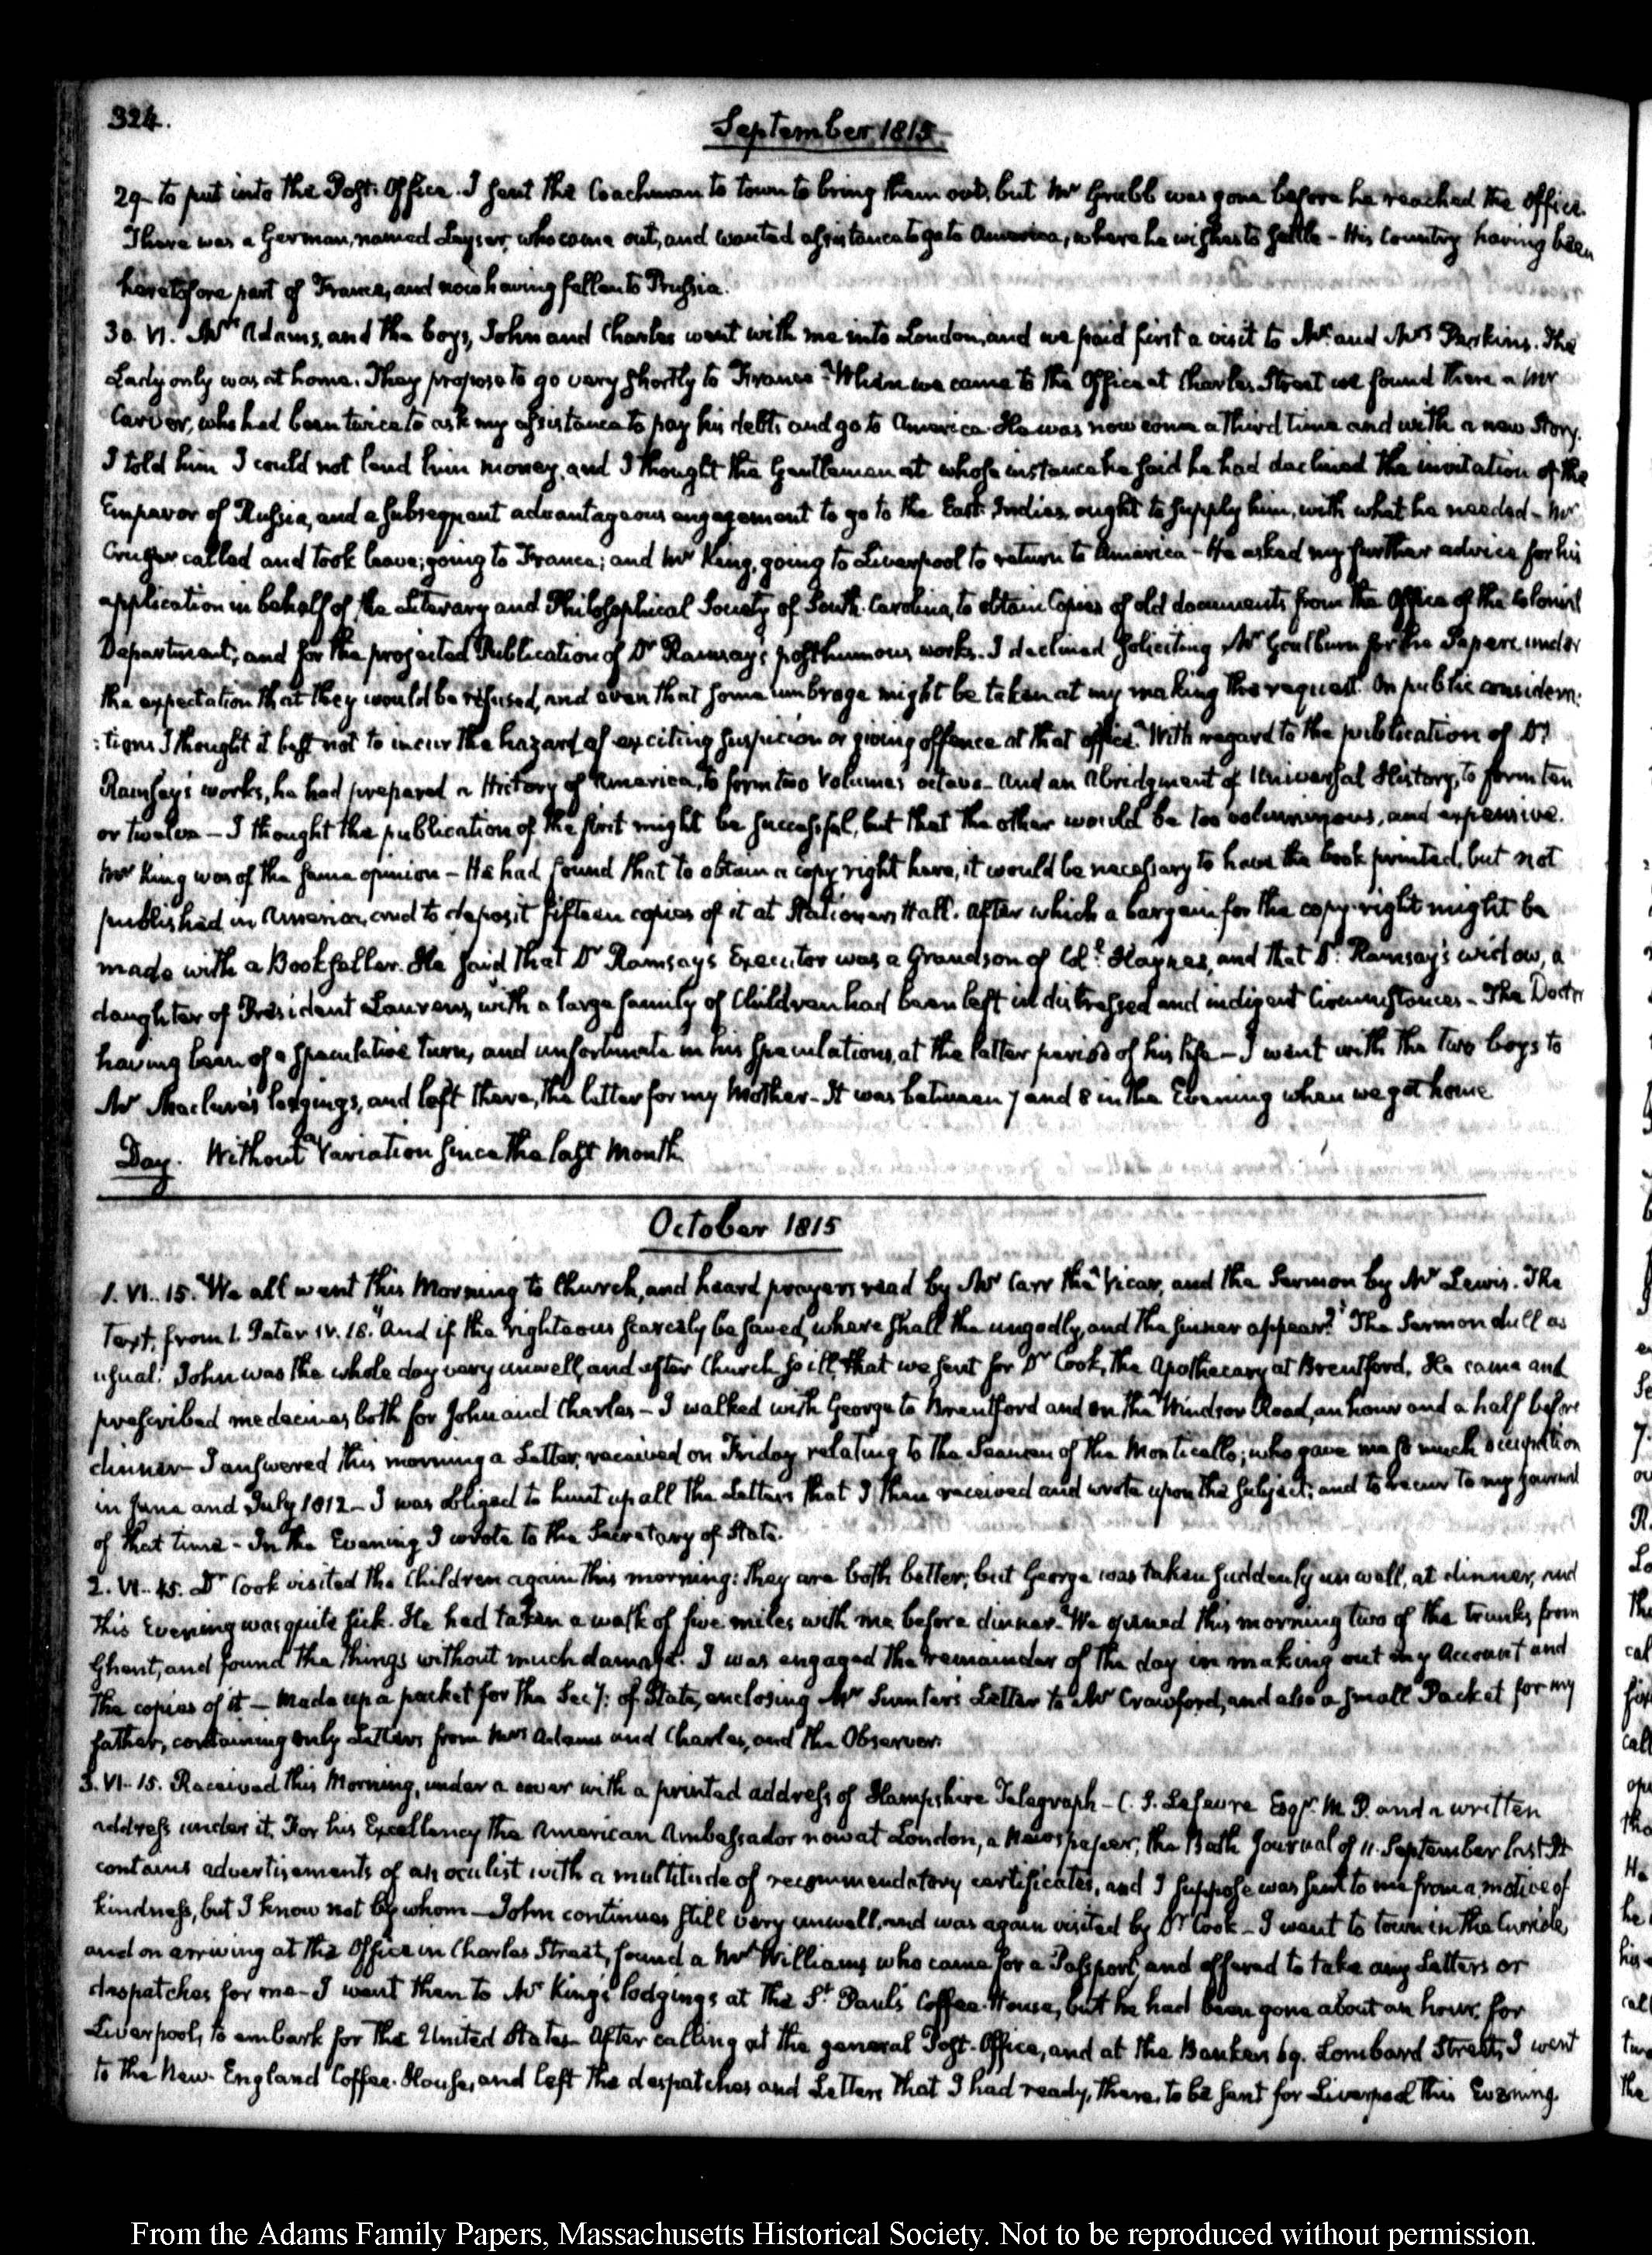 324.
September 1815
29— to put into the Post-Office. I sent the Coachman to town to bring them out, but Mr Grubb was gone before he reached the Office.
There was a German, named Leyser, who came out, and wanted assistance to go to America, where he wishes to settle — His Country having been
heretofore part of France, and now having fallen to Prussia.
30. VI. Mrs Adams, and the boys, John and Charles went with me into London, and we paid first a visit to Mr and Mrs Perkins. The
Lady only was at home. They propose to go very shortly to France. When we came to the Office at Charles Street we found there a Mr
Carver, who had been twice to ask my assistance to pay his debts and go to America. He was now come a third time and with a new Story.
I told him I could not lend him money, and I thought the Gentleman at whose instance he said he had declined the invitation of the
Emperor of Russia, and a subsequent advantageous engagement to go to the East-Indies, ought to supply him, with what he needed — Mr
Cruger called and took leave, going to France; and Mr King, going to Liverpool to return to America — He asked my further advice for his
application in behalf of the Literary and Philosophical Society of South-Carolina, to obtain Copies of old documents from the Office of the Colonial
Department; and for the projected Publication of Dr Ramsay's posthumous works. I declined soliciting Mr Goulburn for the Papers, under
the expectation that they would be refused, and even that some umbrage might be taken at my making the request. On public considera-
:tions I thought it best not to incur the hazard of exciting suspicion or giving offence at that office. With regard to the publication of Dr
Ramsay's works, he had prepared a History of America, to form two Volumes octavo — And an Abridgment of Universal History, to form ten
or twelve — I thought the publication of the first might be successful, but that the other would be too voluminous, and expensive.
Mr King was of the same opinion — He had found that to obtain a copy right here, it would be necessary to have the book printed, but not
published in America, and to deposit fifteen copies of it at Stationers Hall. After which a bargain for the copy-right might be
made with a Bookseller. He said that Dr Ramsay's Executor was a Grandson of Coll. Haynes, and that Dr. Ramsay's widow, a
daughter of President Laurens, with a large family of Children had been left in distressed and indigent Circumstances — The Doctor
having been of a speculative turn, and unfortunate in his speculations, at the latter period of his life — I went with the two boys to
Mr Maclure's lodgings, and left there, the letter for my Mother — It was between 7 and 8 in the Evening when we got home
Day. Without Variation since the last Month.
October 1815
1. VI. 15. We all went this Morning to Church, and heard prayers read by Mr Carr the Vicar, and the Sermon by Mr Lewis. The
Text, from 1. Peter IV. 18. "And if the righteous scarcely be saved, where shall the ungodly, and the sinner appear?" The Sermon dull as
usual. John was the whole day very unwell, and after Church so ill, that we sent for Dr Cook, the Apothecary at Brentford. He came and
prescribed medecines both for John and Charles — I walked with George to Brentford and on the Windsor Road, an hour and a half before
dinner — I answered this morning a Letter, received on Friday relating to the Seamen of the Monticello; who gave me so much occupation
in June and July 1812 — I was obliged to hunt up all the Letters that I then received and wrote upon the subject; and to recur to my journal
of that time — In the Evening I wrote to the Secretary of State.
2. VI. 45. Dr Cook visited the Children again this morning: they are both better; but George was taken suddenly unwell, at dinner, and
this Evening was quite sick. He had taken a walk of five miles with me before dinner. We opened this morning two of the trunks from
Ghent, and found the things without much damage. I was engaged the remainder of the day in making out my Account and
the copies of it — Made up a packet for the Secy: of State, enclosing Mr Sumter's Letter to Mr Crawford, and also a small Packet for my
father, containing only Letters from Mrs Adams and Charles, and the Observer.
3. VI. 15. Received this Morning, under a cover with a printed address of Hampshire Telegraph — C. S. Lefevre Esqr. M.P. and a written
address under it, For his Excellency the American Ambassador now at London, a Newspaper, the Bath Journal of 11. September last. It
contains advertisements of an oculist with a multitude of recommendatory certificates, and I suppose was sent to me from a motive of
kindness, but I know not by whom — John continues still very unwell, and was again visited by Dr Cook — I went to town in the Curricle,
and on arriving at the Office in Charles Street, found a Mr Williams who came for a Passport, and offered to take any Letters or
despatches for me — I went then to Mr King's lodgings at the St. Paul's Coffee-House, but he had been gone about an hour, for
Liverpool, to embark for the United States — After calling at the general Post-Office, and at the Bankers 69. Lombard Street, I went
to the New-England Coffee-House, and left the despatches and Letters that I had ready, there, to be sent for Liverpool this Evening.
From the Adams Family Papers, Massachusetts Historical Society. Not to be reproduced without permission.